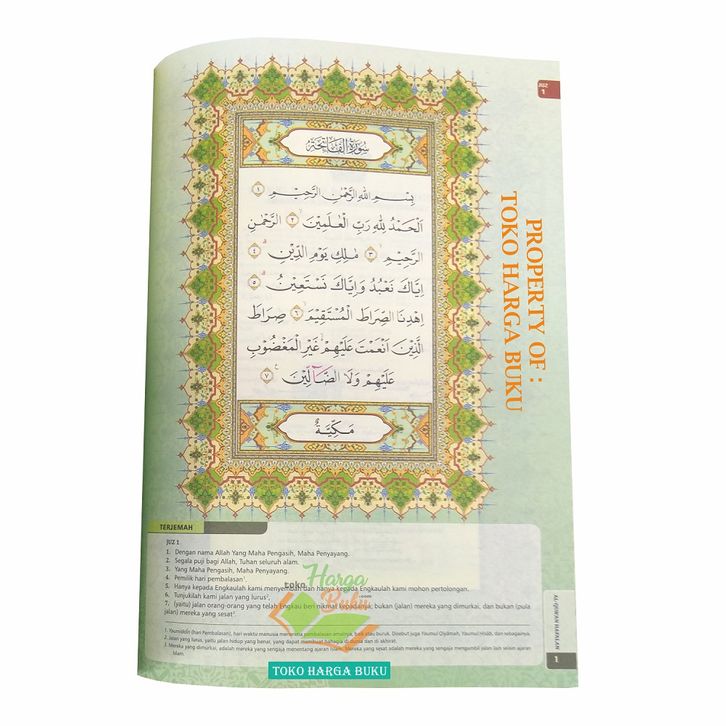 JUZ
1
سُوْرَةُ الْفَاتِحَةِ
بِسْمِ اللّٰهِ الرَّحْمٰنِ الرَّحِيْمِ ١
اَلْحَمْدُ لِلّٰهِ رَبِّ الْعٰلَمِيْنَ ٢ الرَّحْمٰنِ
الرَّحِيْمِ ٣ مٰلِكِ يَوْمِ الدِّيْنِ ٤
اِيَّاكَ نَعْبُدُ وَاِيَّاكَ نَسْتَعِيْنُ ٥
اِهْدِنَا الصِّرَاطَ الْمُسْتَقِيْمَ ٦ صِرَاطَ
الَّذِيْنَ اَنْعَمْتَ عَلَيْهِمْ غَيْرِ الْمَغْضُوْبِ
عَلَيْهِمْ وَلَا الضَّاۤلِّيْنَ ٧
مَكِّيَّةٌ
PROPERTY OF :
TOKO HARGA BUKU
TERJEMAH
JUZ 1
1. Dengan nama Allah Yang Maha Pengasih, Maha Penyayang.
2. Segala puji bagi Allah, Tuhan seluruh alam.
3. Yang Maha Pengasih, Maha Penyayang.
4. Pemilik hari pembalasan¹.
5. Hanya kepada Engkaulah kami menyembah dan hanya kepada Engkaulah kami mohon pertolongan.
6. Tunjukilah kami jalan yang lurus²,
7. (yaitu) jalan orang-orang yang telah Engkau beri nikmat kepadanya; bukan (jalan) mereka yang dimurkai, dan bukan (pula
jalan) mereka yang sesat³.
1. Yaumiddīn (hari Pembalasan), hari waktu manusia menerima pembalasan amalnya, baik atau buruk. Disebut juga Yaumul Qiyāmah, Yaumul Hisāb, dan sebagainya.
2. Jalan yang lurus, yaitu jalan hidup yang benar, yang dapat membuat bahagia di dunia dan di akhirat.
3. Mereka yang dimurkai, adalah mereka yang sengaja menentang ajaran Islam. Mereka yang sesat adalah mereka yang sengaja mengambil jalan lain selain ajaran
Islam.
toko
Harga
Buku
TOKO HARGA BUKU
AL-QUR'AN HAFALAN
1